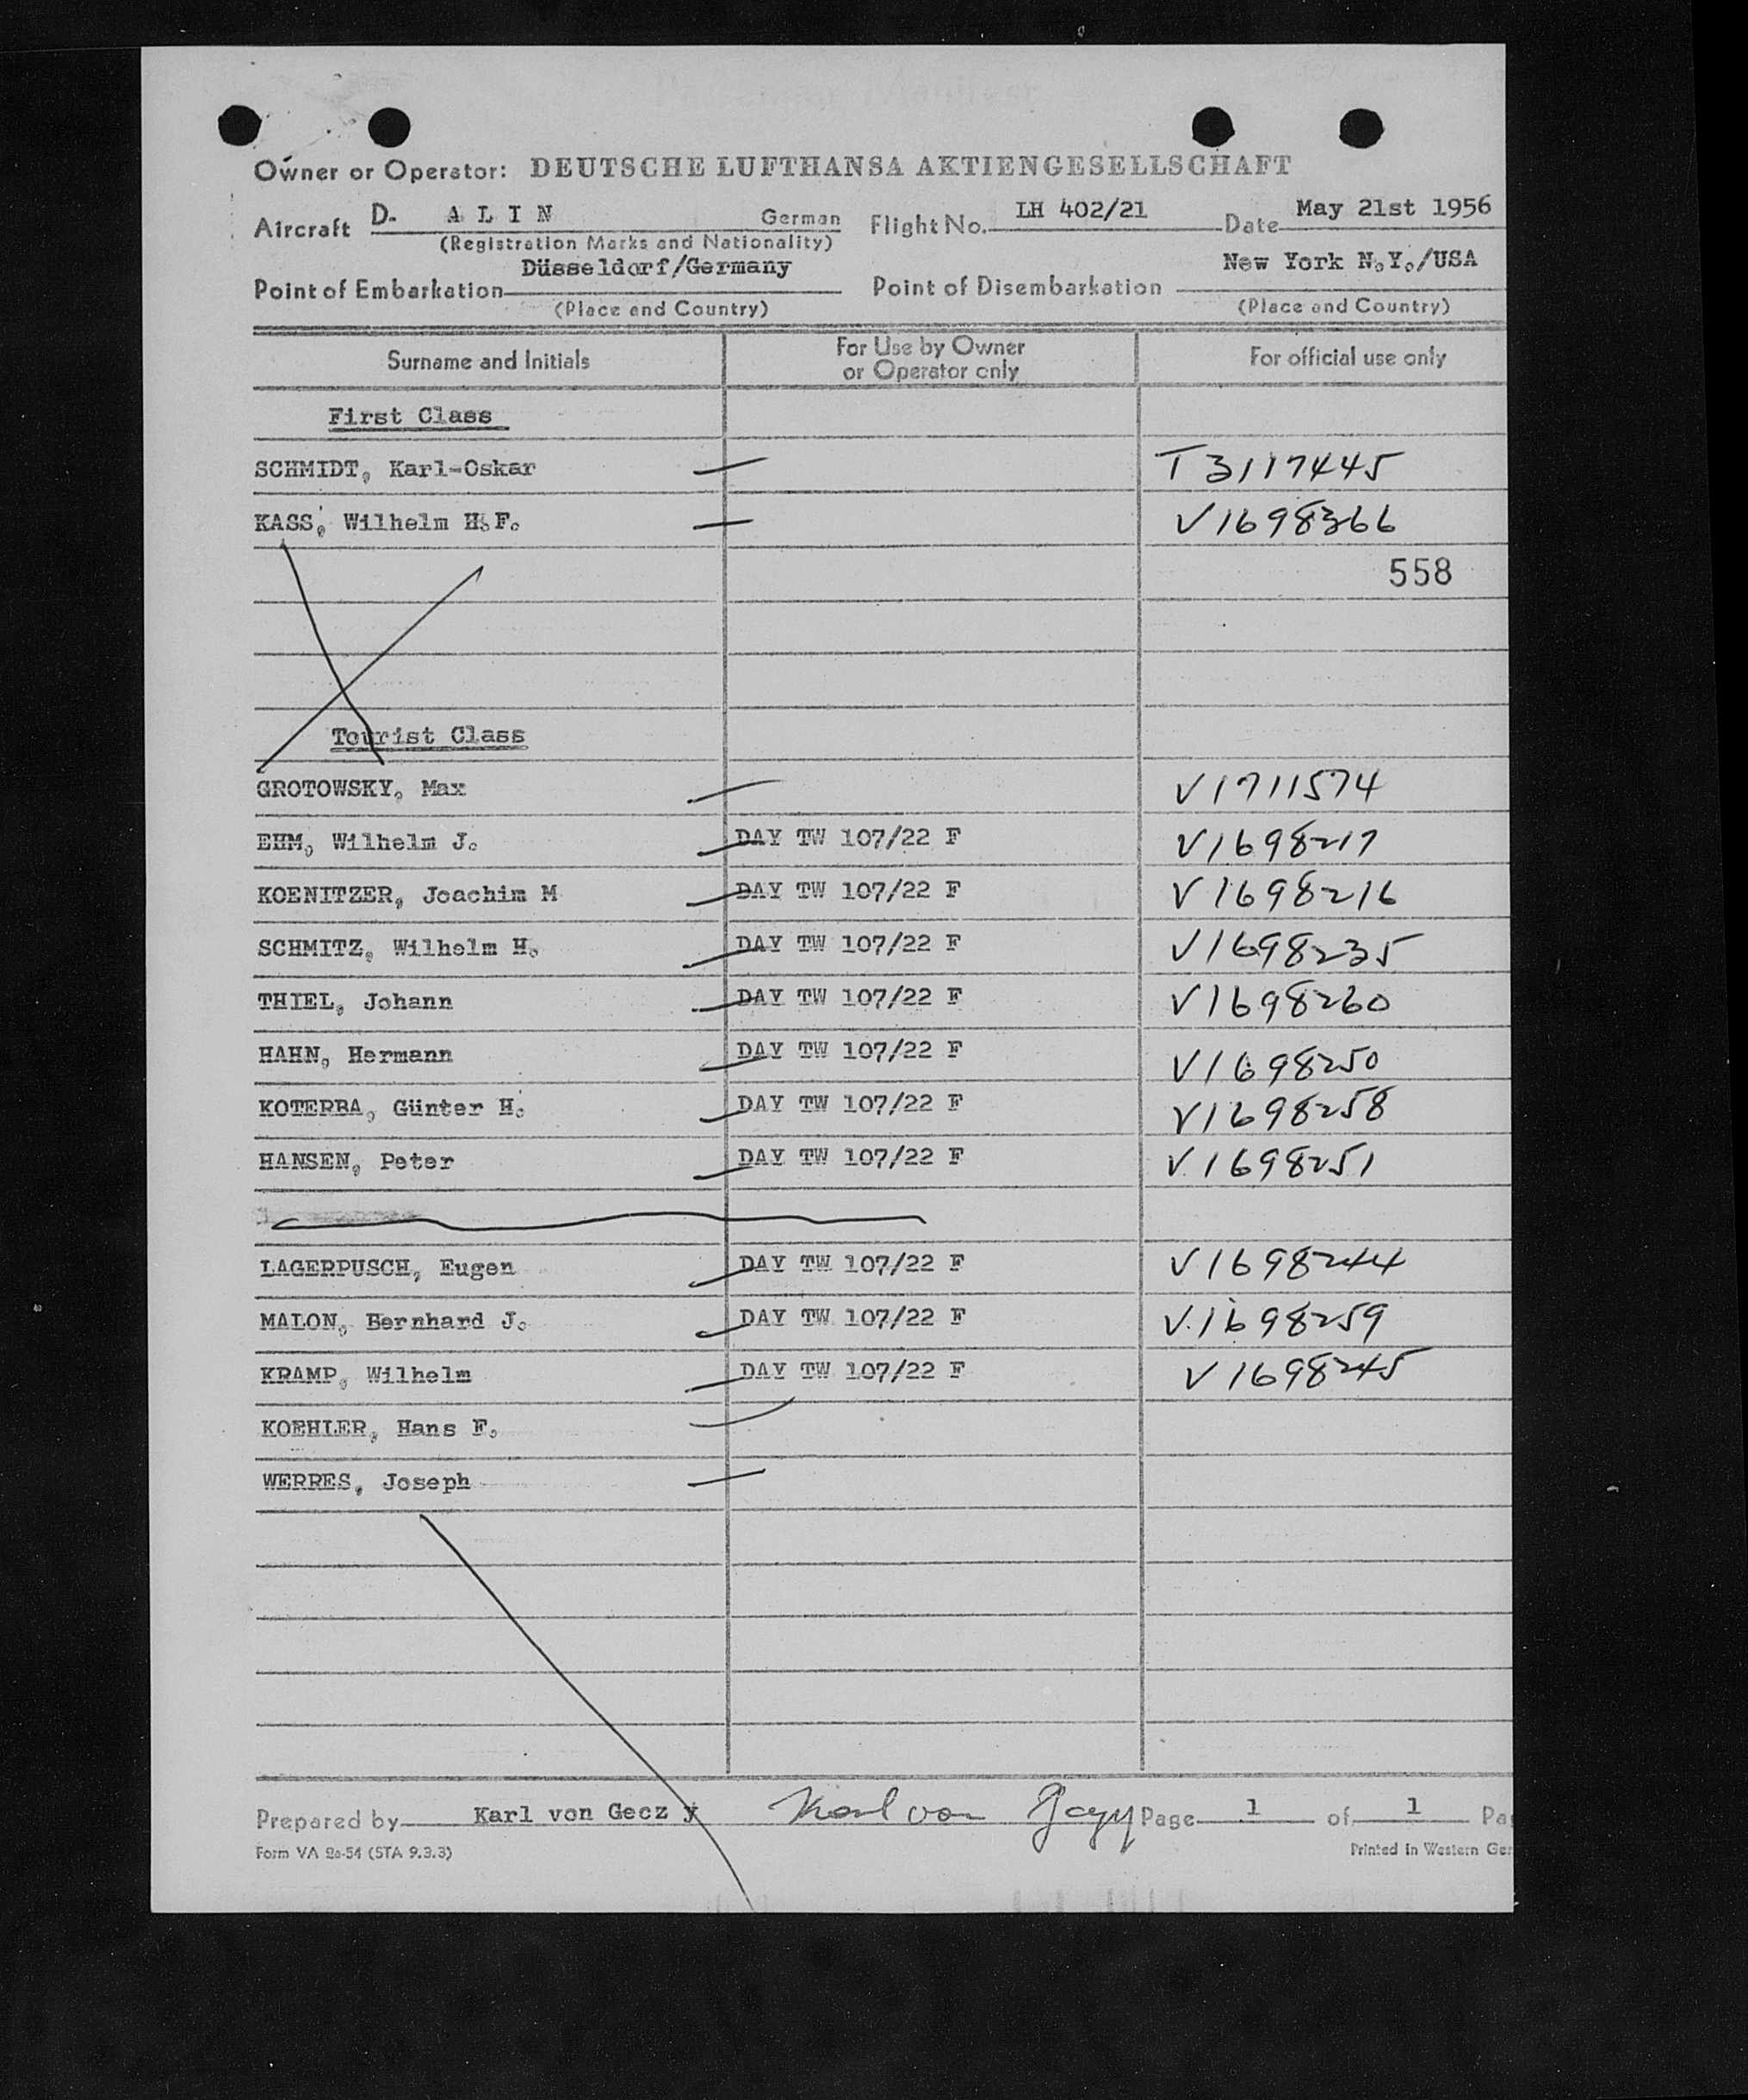 Owner or Operator: DEUTSCHE LUFTHANSA AKTIENGESELLSCHAFT
Aircraft D- A L I N German Flight No. LH 402/21 Date May 21st 1956
(Registration Marks and Nationality)
Düsseldorf/Germany New York N.Y./USA
Point of Embarkation Point of Disembarkation
(Place and Country) (Place and Country)
Surname and Initials For Use by Owner or Operator only For official use only
First Class
SCHMIDT, Karl-Oskar T 3117445
KASS, Wilhelm H.F. V1698366
558
Tourist Class
GROTOWSKY, Max V1711574
EHM, Wilhelm J. DAY TW 107/22 F V1698217
KOENITZER, Joachim M DAY TW 107/22 F V1698216
SCHMITZ, Wilhelm H. DAY TW 107/22 F V1698235
THIEL, Johann DAY TW 107/22 F V1698260
HAHN, Hermann DAY TW 107/22 F V1698250
KOTERBA, Günter H. DAY TW 107/22 F V1698258
HANSEN, Peter DAY TW 107/22 F V1698251
LAGERPUSCH, Eugen DAY TW 107/22 F V1698244
MALON, Bernhard J. DAY TW 107/22 F V1698259
KRAMP, Wilhelm DAY TW 107/22 F V1698245
KOEHLER, Hans F.
WERRES, Joseph
Prepared by Karl von Gecz y Karl von Page 1 of 1 Pa
Form VA 2a-54 (STA 9.3.3) Printed in Western Ger